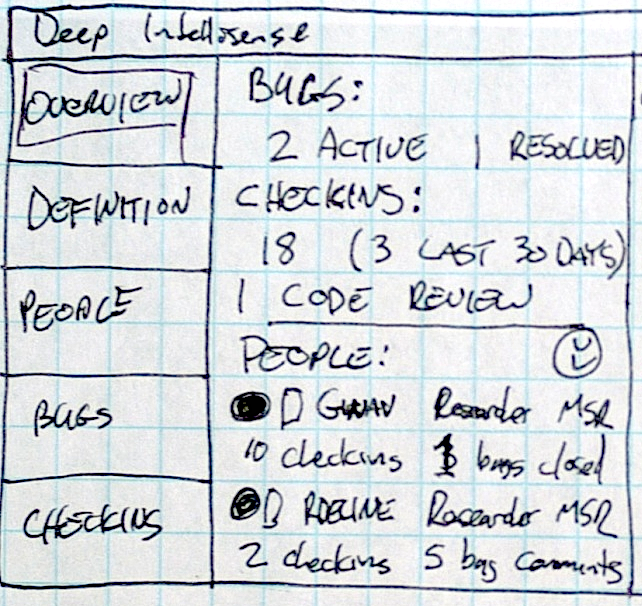 Deep Intellisense
OVERVIEW
DEFINITION
PEOPLE
BUGS
CHECKINS
BUGS:
2 ACTIVE 1 RESOLVED
CHECKINS:
18 (3 LAST 30 DAYS)
1 CODE REVIEW
PEOPLE:
Researcher MSR
10 checkins bugs closed
RDELINE Researcher MSR
2 checkins 5 bug comments